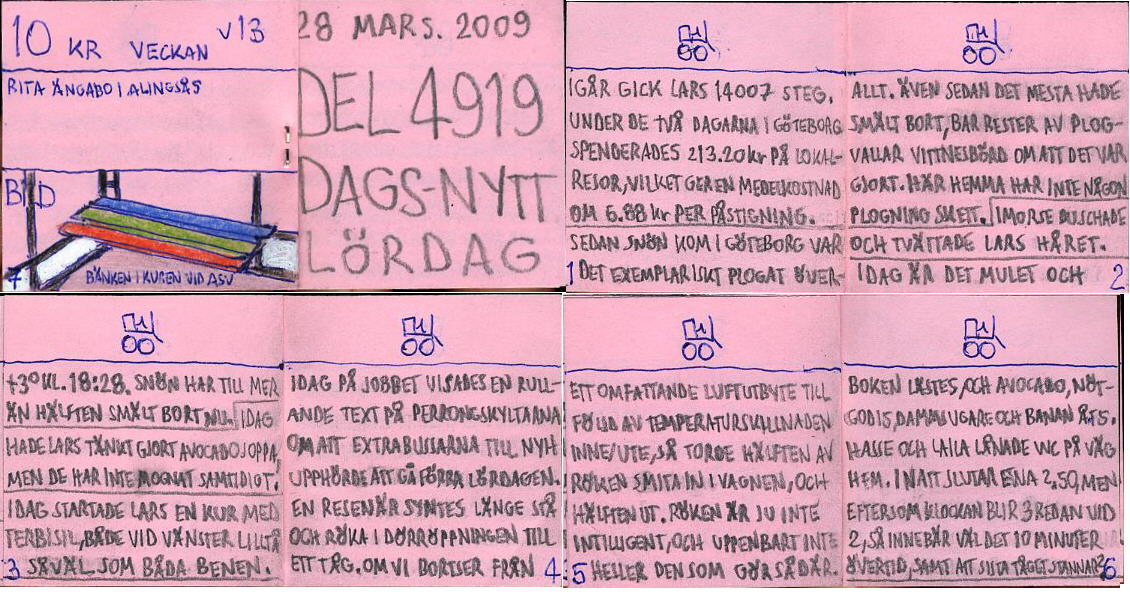 10 KR VECKAN V13
RITA ÄNGABO I ALINGSÅS
BILD
BÄNKEN I KUREN VID ASV
7
28 MARS. 2009
DEL 4919
DAGS-NYTT
LÖRDAG
IGÅR GICK LARS 14007 STEG.
UNDER DE TVÅ DAGARNA I GÖTEBORG
SPENDERADES 213.20 kr PÅ LOKAL-
RESOR, VILKET GER EN MEDELKOSTNAD
OM 6.88 kr PER PÅSTIGNING.
SEDAN SNÖN KOM I GÖTEBORG VAR
1 DET EXEMPLARISKT PLOGAT ÖVER-
ALLT. ÄVEN SEDAN DET MESTA HADE
SMÄLT BORT, BAR RESTER AV PLOG-
VALLAR VITTNESBÖRD OM ATT DET VAR
GJORT. HÄR HEMMA HAR INTE NÅGON
PLOGNING SKETT. IMORSE DUSCHADE
OCH TVÄTTADE LARS HÅRET.
IDAG ÄR DET MULET OCH 2
+3° KL. 18:28. SNÖN HAR TILL MER
ÄN HÄLFTEN SMÄLT BORT NU. IDAG
HADE LARS TÄNKT GJORT AVOCADOSOPPA,
MEN DE HAR INTE MOGNAT SAMTIDIGT.
IDAG STARTADE LARS EN KUR MED
TERBISIL, BÅDE VID VÄNSTER LILLTÅ
3 SÅVÄL SOM BÅDA BENEN.
IDAG PÅ JOBBET VISADES EN RULL-
ANDE TEXT PÅ PERRONGSKYLTARNA
OM ATT EXTRABUSSARNA TILL NYH
UPPHÖRDE ATT GÅ FÖRRA LÖRDAGEN.
EN RESENÄR SYNTES LÄNGE STÅ
OCH RÖKA I DÖRRÖPPNINGEN TILL
ETT TÅG. OM VI BORTSER FRÅN 4
ETT OMFATTANDE LUFTUTBYTE TILL
FÖLJD AV TEMPERATURSKILLNADEN
INNE/UTE, SÅ TORDE HÄLFTEN AV
RÖKEN SMITA IN I VAGNEN, OCH
HÄLFTEN UT. RÖKEN ÄR JU INTE
INTILLIGENT, OCH UPPENBART INTE
5 HELLER DEN SOM GÖR SÅ DÄR.
BOKEN LÄSTES, OCH AVOCADO, NÖT-
GODIS, DAMMSUGARE OCH BANAN ÅTS.
HASSE OCH LAILA LÅNADE WC PÅ VÄG
HEM. I NATT SLUTAR ENA 2.50, MEN
EFTERSOM KLOCKAN BLIR 3 REDAN VID
2, SÅ INNEBÄR VÄL DET 10 MINUTER
ÖVERTID, SAMT ATT SISTA TÅGET STANNAR? 6